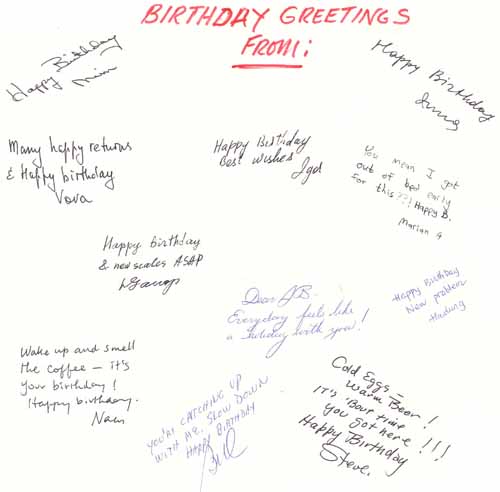 BIRTHDAY GREETINGS
FROM:
Happy Birthday
Happy Birthday
Many happy returns
& Happy birthday
Vova
Happy Birthday
Best wishes
You mean I got
out of bed early
for this??! Happy B.
Marian G
Happy birthday
& new scales ASAP
Dear JB-
Everyday feels like
a holiday with you!
Happy Birthday
New problem
Wake up and smell
the coffee – it's
your birthday!
Happy birthday.
Nam
YOU'RE CATCHING UP
WITH ME. SLOW DOWN
HAPPY BIRTHDAY
Bill
Cold Eggs –
Warm Beer!
IT'S 'Bout time
you got here!!!
Happy Birthday
Steve.